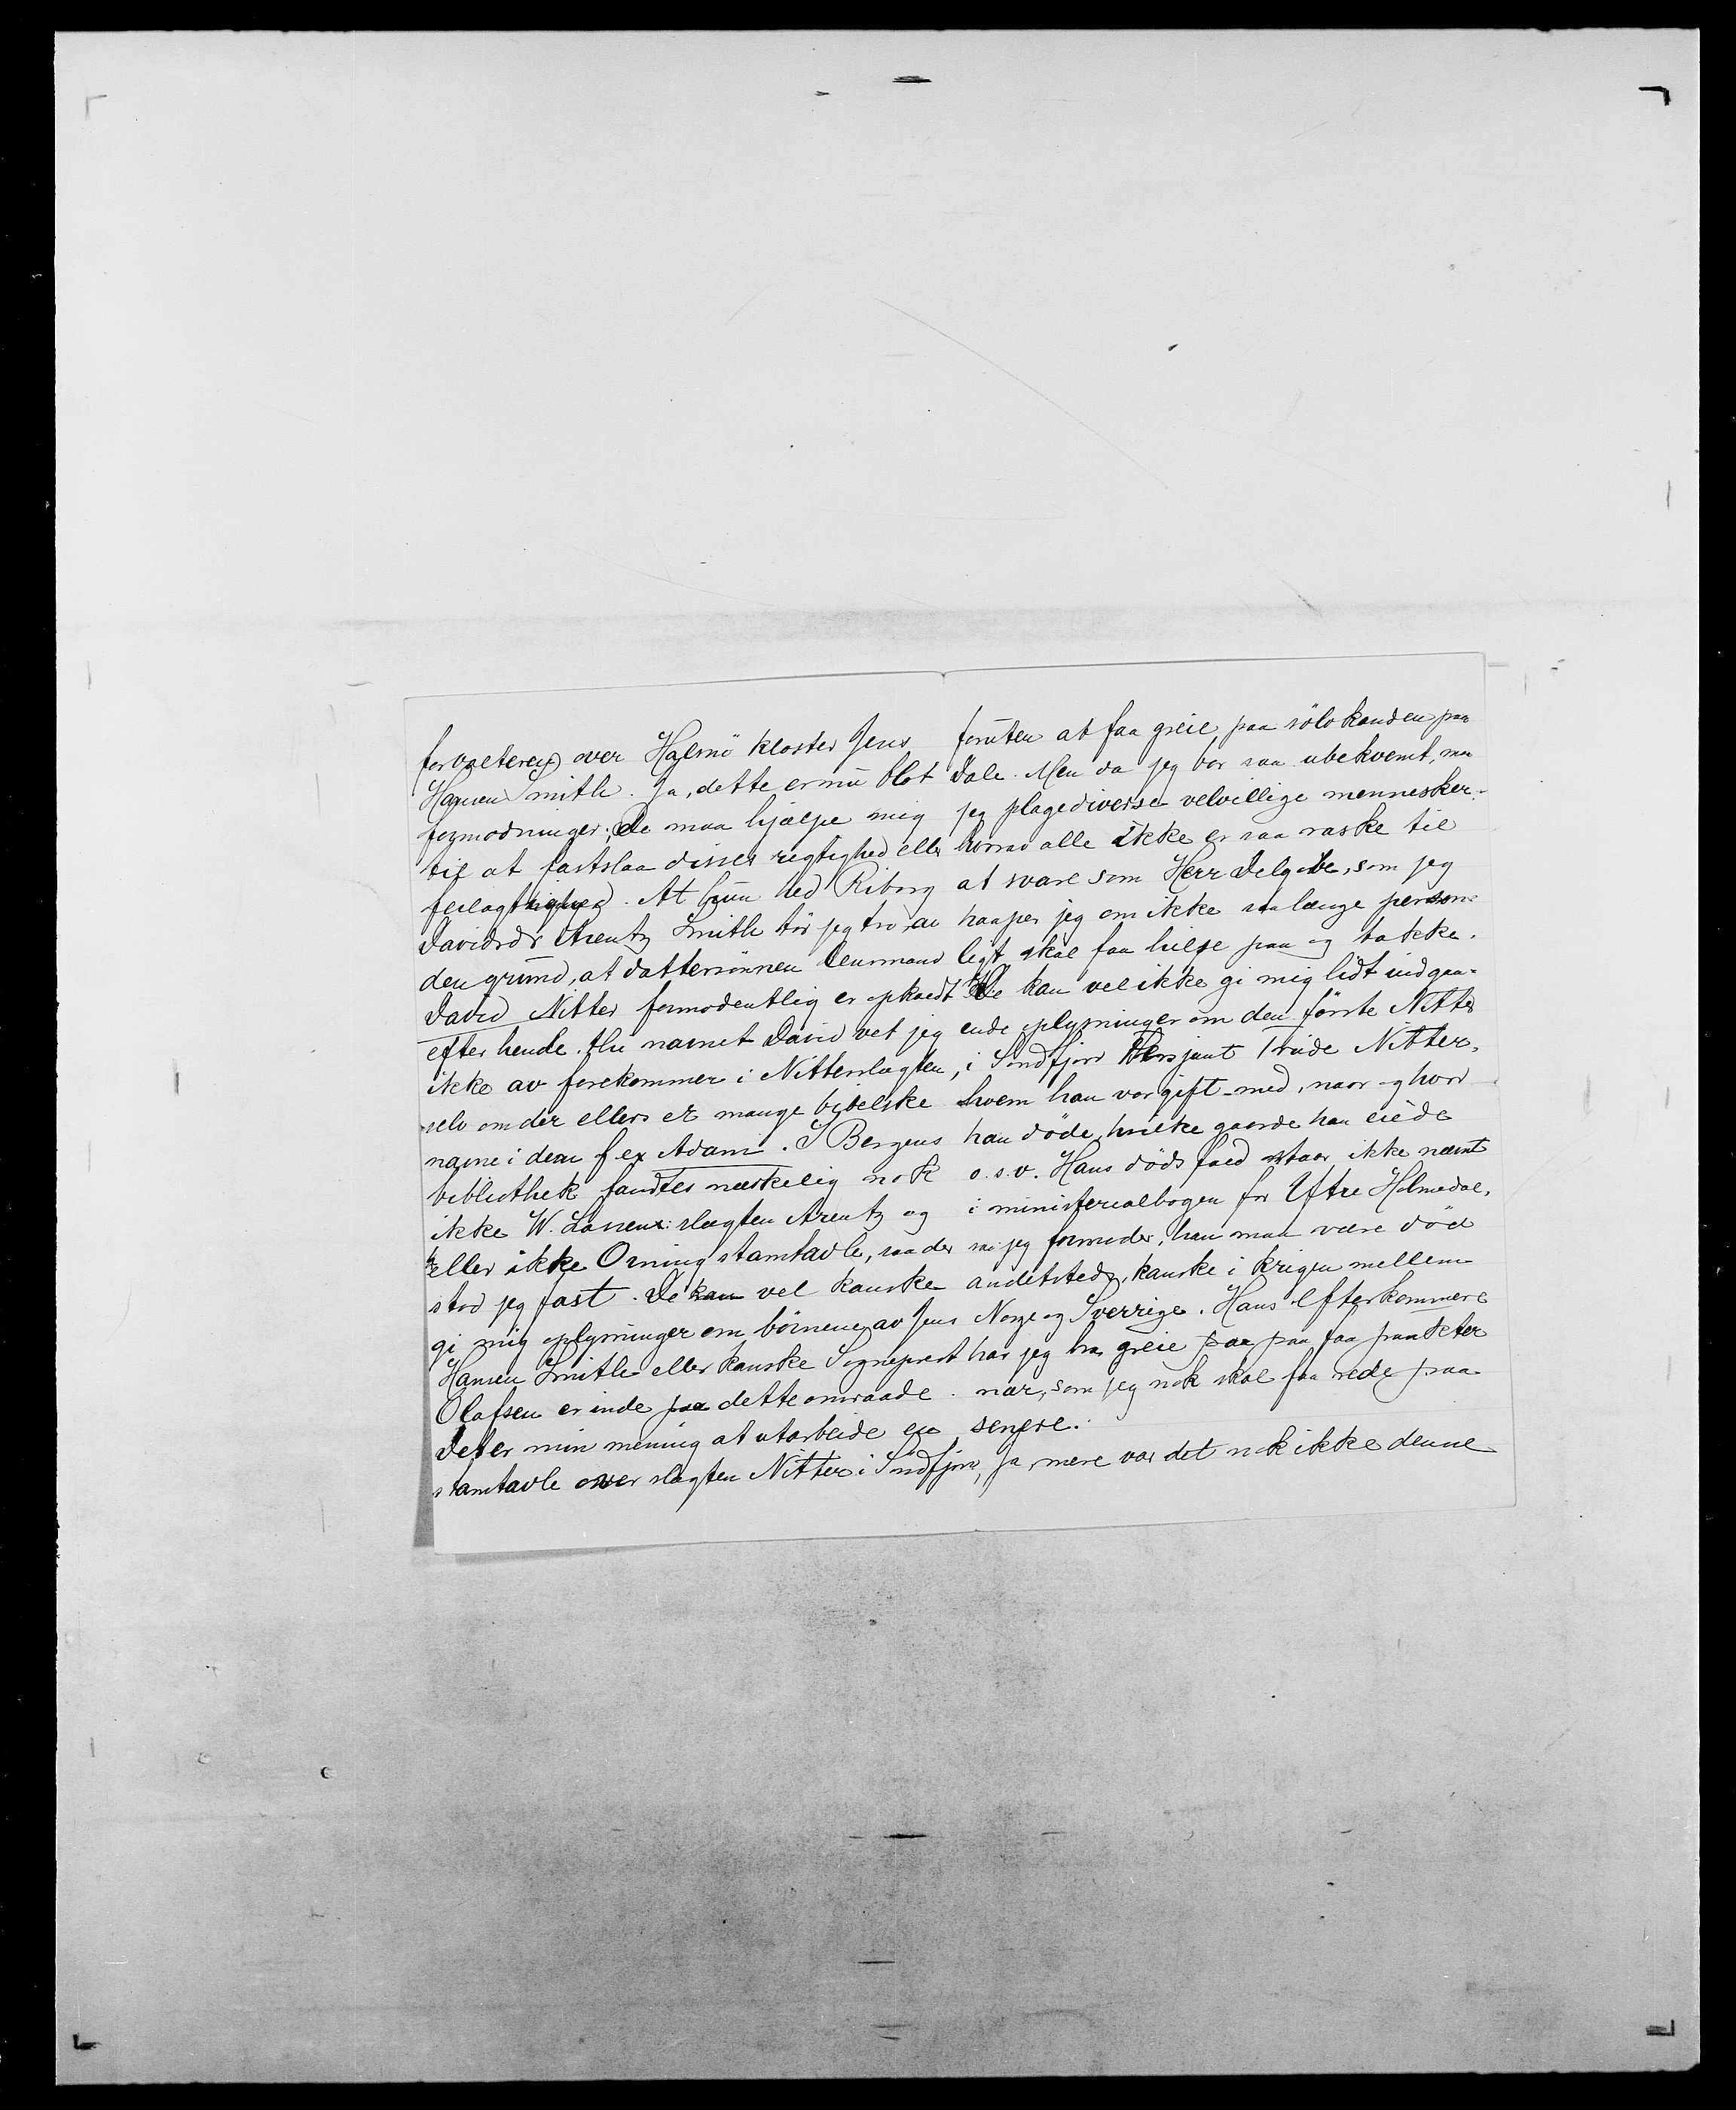 forvalteren over Halsnö kloster Jens
Hansen Smith. Ja, dette er nu blot
formodninger; De maa hjælpe mig
til at fastslaa disses rigtighed eller
feilagtighed. At hun hed Riborg
Davidsdr Arentz Smith tör jeg tro, av
den grund, at dattersönnen lensmand
David Nitter formodentlig er opkaldt
efter hende. Thi navnet David vet jeg
ikke av forekommer i Nitterslægten,
selv om der ellers er mange bibelske
navne i den f. ex Adam. I Bergens
bibliothek fandtes mærkelig nok
ikke W. Lassens: slægten Arentz og
heller ikke Orning stamtavle, saa der
stod jeg fast. De kan vel kanske
gi mig oplysninger om börnene av Jens
Hansen Smith eller kanske Sogneprest
Olafsen er inde paa dette omraade.
Det er min mening at utarbeide en
stamtavle over slægten Nitter i Söndfjord,
foruten at faa greie paa sölvkanden paa
Dale. Men da jeg bor saa ubekvemt, maa
jeg plage diverse velvillige mennesker,
hvorav alle ikke er saa raske til
at svare som Herr Delgobe, som jeg
haaper jeg om ikke saa længe person-
ligt skal faa hilse paa og takke.
De kan vel ikke gi mig lidt indgaa-
ende oplysninger om den förste Nitter
i Söndfjord Thrude Nitter,
hvem han var gift med, naar og hvor
han döde, hvilke gaarde han eiede
o.s.v. Hans dödsfald staar ikke nævnt
i ministerialbogen for Ytre Holmedal,
saa jeg formoder, han maa være död
andetsteds, kanske i krigen mellem
Norge og Sverrige. Hans Efterkommere
har jeg bra greie paa paa faa punkter
nær, som jeg nok skal faa rede paa
senere.
Ja, mere var det nok ikke denne